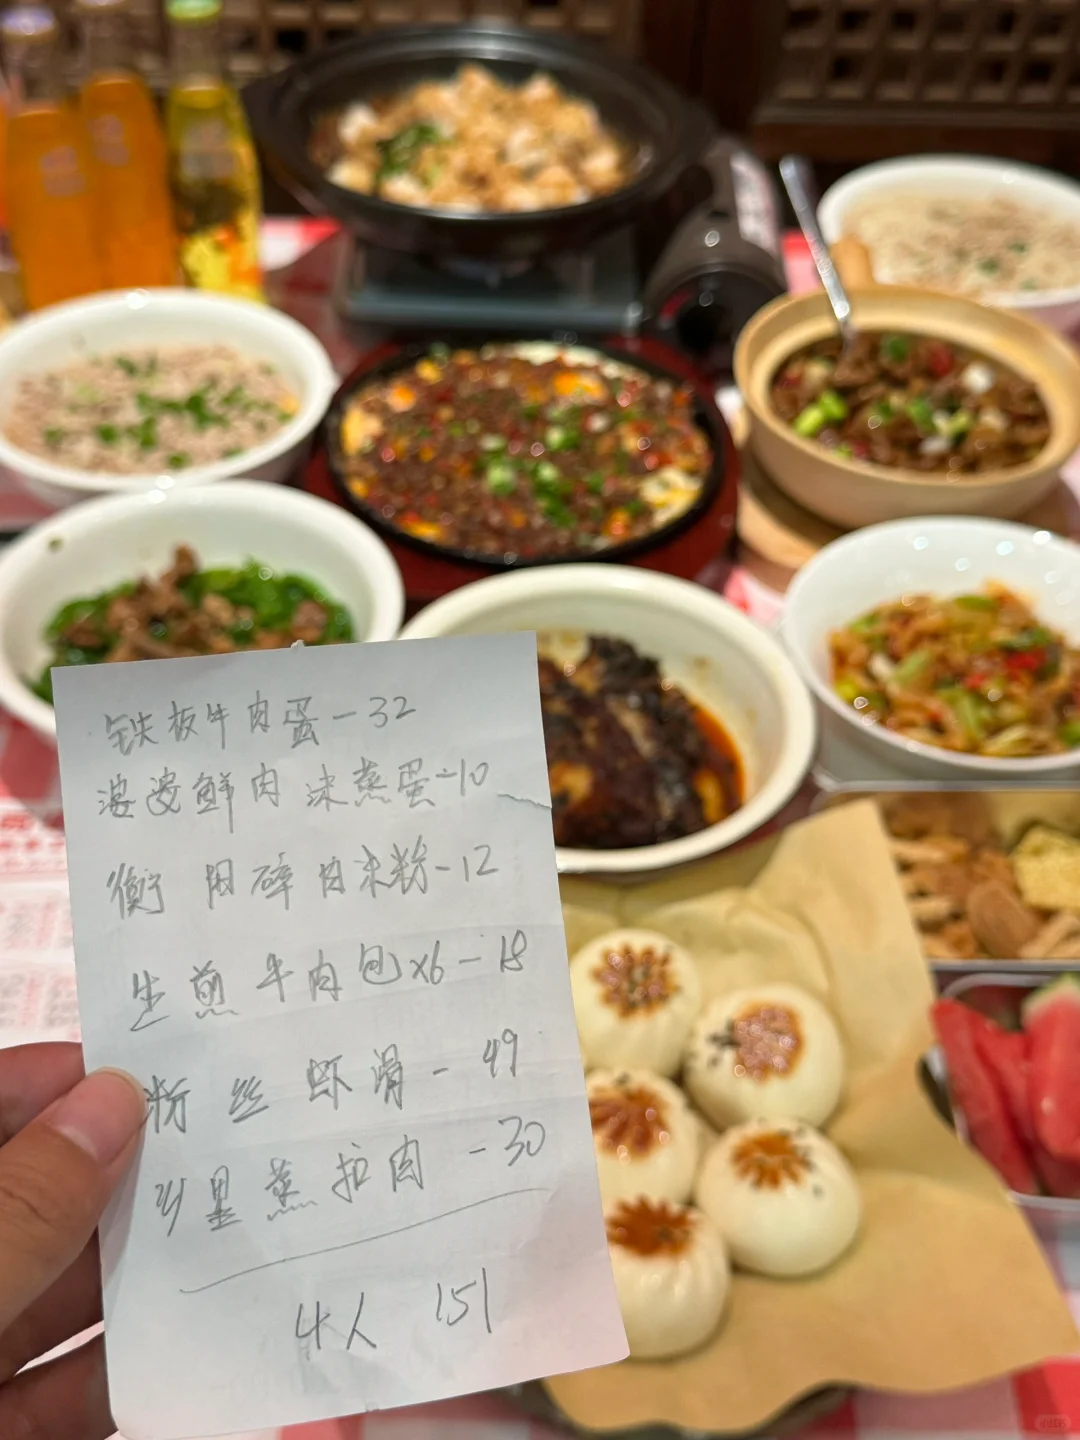 铁板牛肉蛋-32
婆婆鲜肉沫蒸蛋-10
衡阳碎肉米粉-12
生煎牛肉包x6-18
粉丝虾滑-49
乡里蒸扣肉-30
4人 151